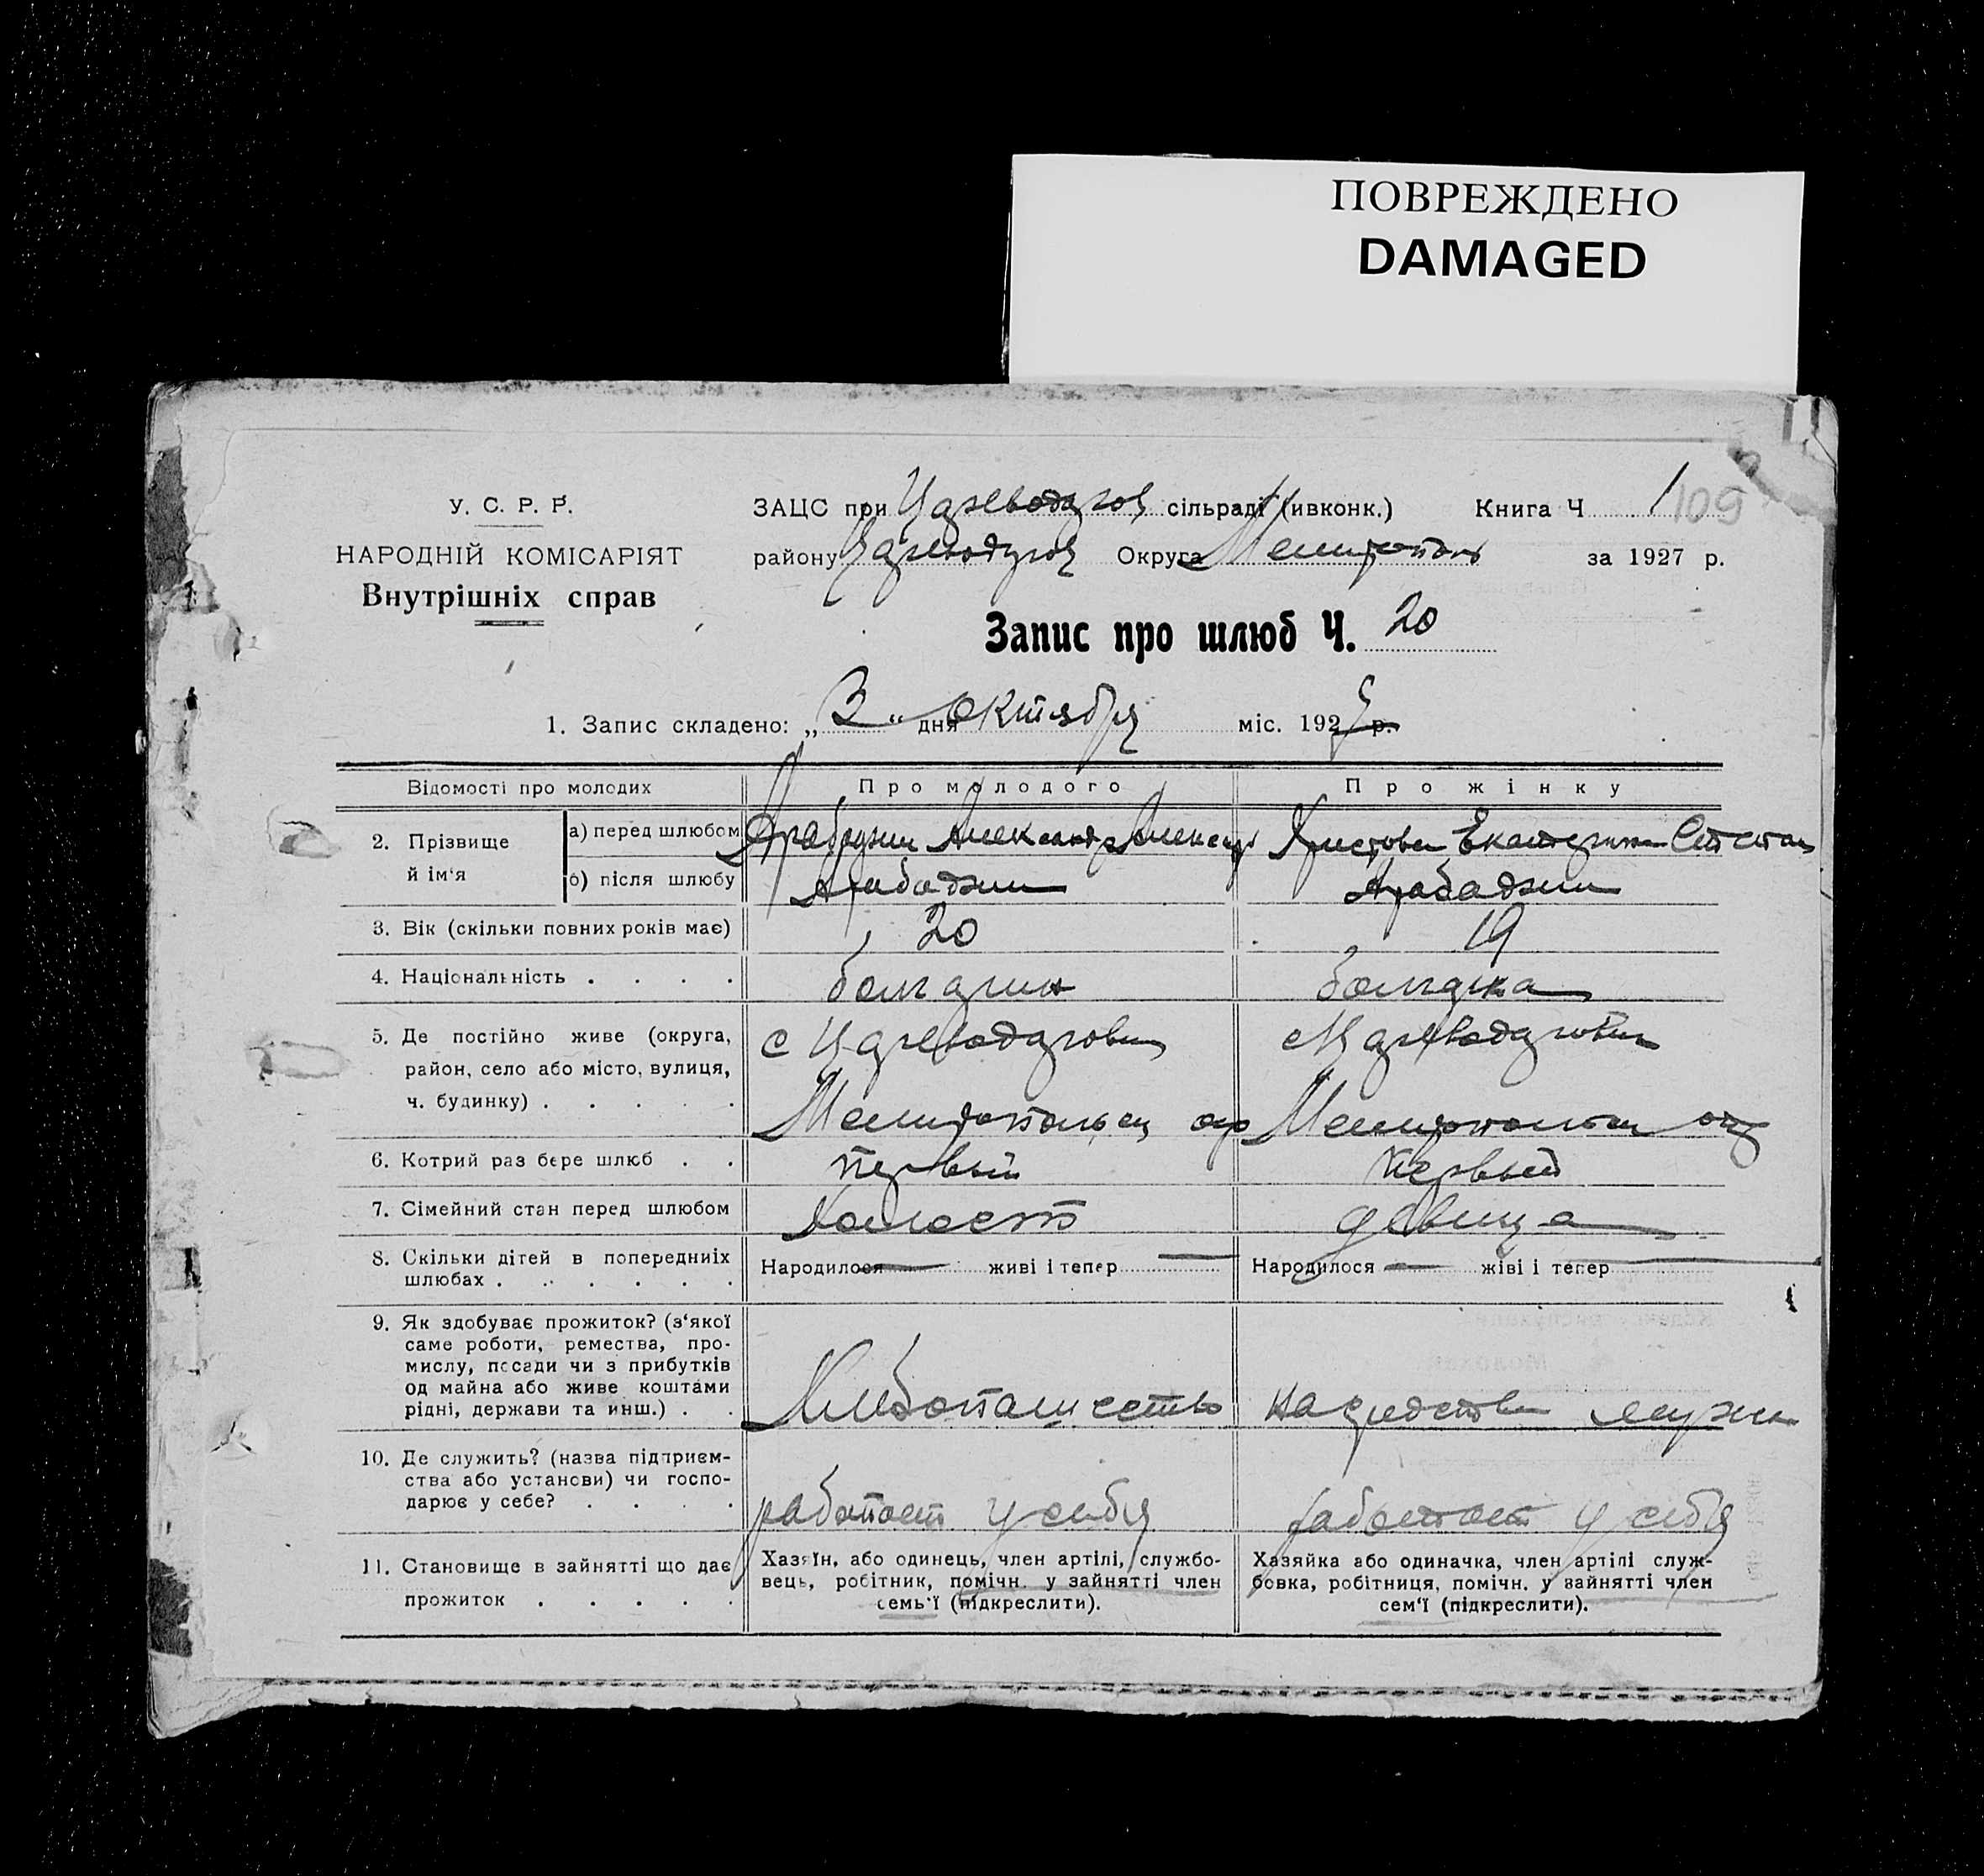 ПОВРЕЖДЕНО
DAMAGED
У. С. Р. Р.
НАРОДНІЙ КОМІСАРІЯТ
Внутрішніх справ
ЗАЦС при Цареводаров сільраді (ивконк.) Книга Ч 1 109
району Цареводаров Округа Мелитополь за 1927 р.
Запис про шлюб Ч. 20
1. Запис складено: „ 3 " дня Октября міс. 1927 р.
Відомості про молодих
Про молодого
Про жінку
2. Прізвище й ім'я
а) перед шлюбом
Арабаджи Александр Алексеев
Христова Екатерина Степан
б) після шлюбу
Арабаджи
Арабаджи
3. Вік (скільки повних років має)
20
19
4. Національність . . . .
болгарин
болгарка
5. Де постійно живе (округа,
район, село або місто, вулиця,
ч. будинку) . . . . .
с Цареводаровки
Мелитопольск окр
с Цареводаровки
Мелитопольск окр
6. Котрий раз бере шлюб . .
первый
первый
7. Сімейний стан перед шлюбом
Холост
девица
8. Скільки дітей в попередниіх
шлюбах . . . . . .
Народилося — живі і тепер —
Народилося — жіві і тепер
9. Як здобуває прожиток? (з'якої
саме роботи, ремества, про-
мислу, посади чи з прибутків
од майна або живе коштами
рідні, держави та инш.) . .
Хлебопашество
на средства мужа
10. Де служить? (назва підприєм-
ства або установи) чи госпо-
дарює у себе? . . . .
работает у себя
работает у себя
11. Становище в зайнятті що дає
прожиток . . . . .
Хазяїн, або одинець, член артілі, службо-
вець, робітник, помічн. у зайнятті член
семь'ї (підкреслити).
Хазяйка або одиначка, член артілі служ-
бовка, робітниця, помічн. у зайнятті член
сем'ї (підкреслити).